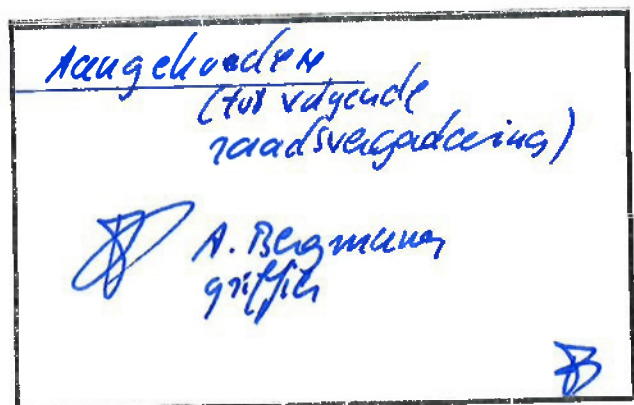 Aangehouden
(tot volgende
raadsvergadering)
A. Bergman
griffier